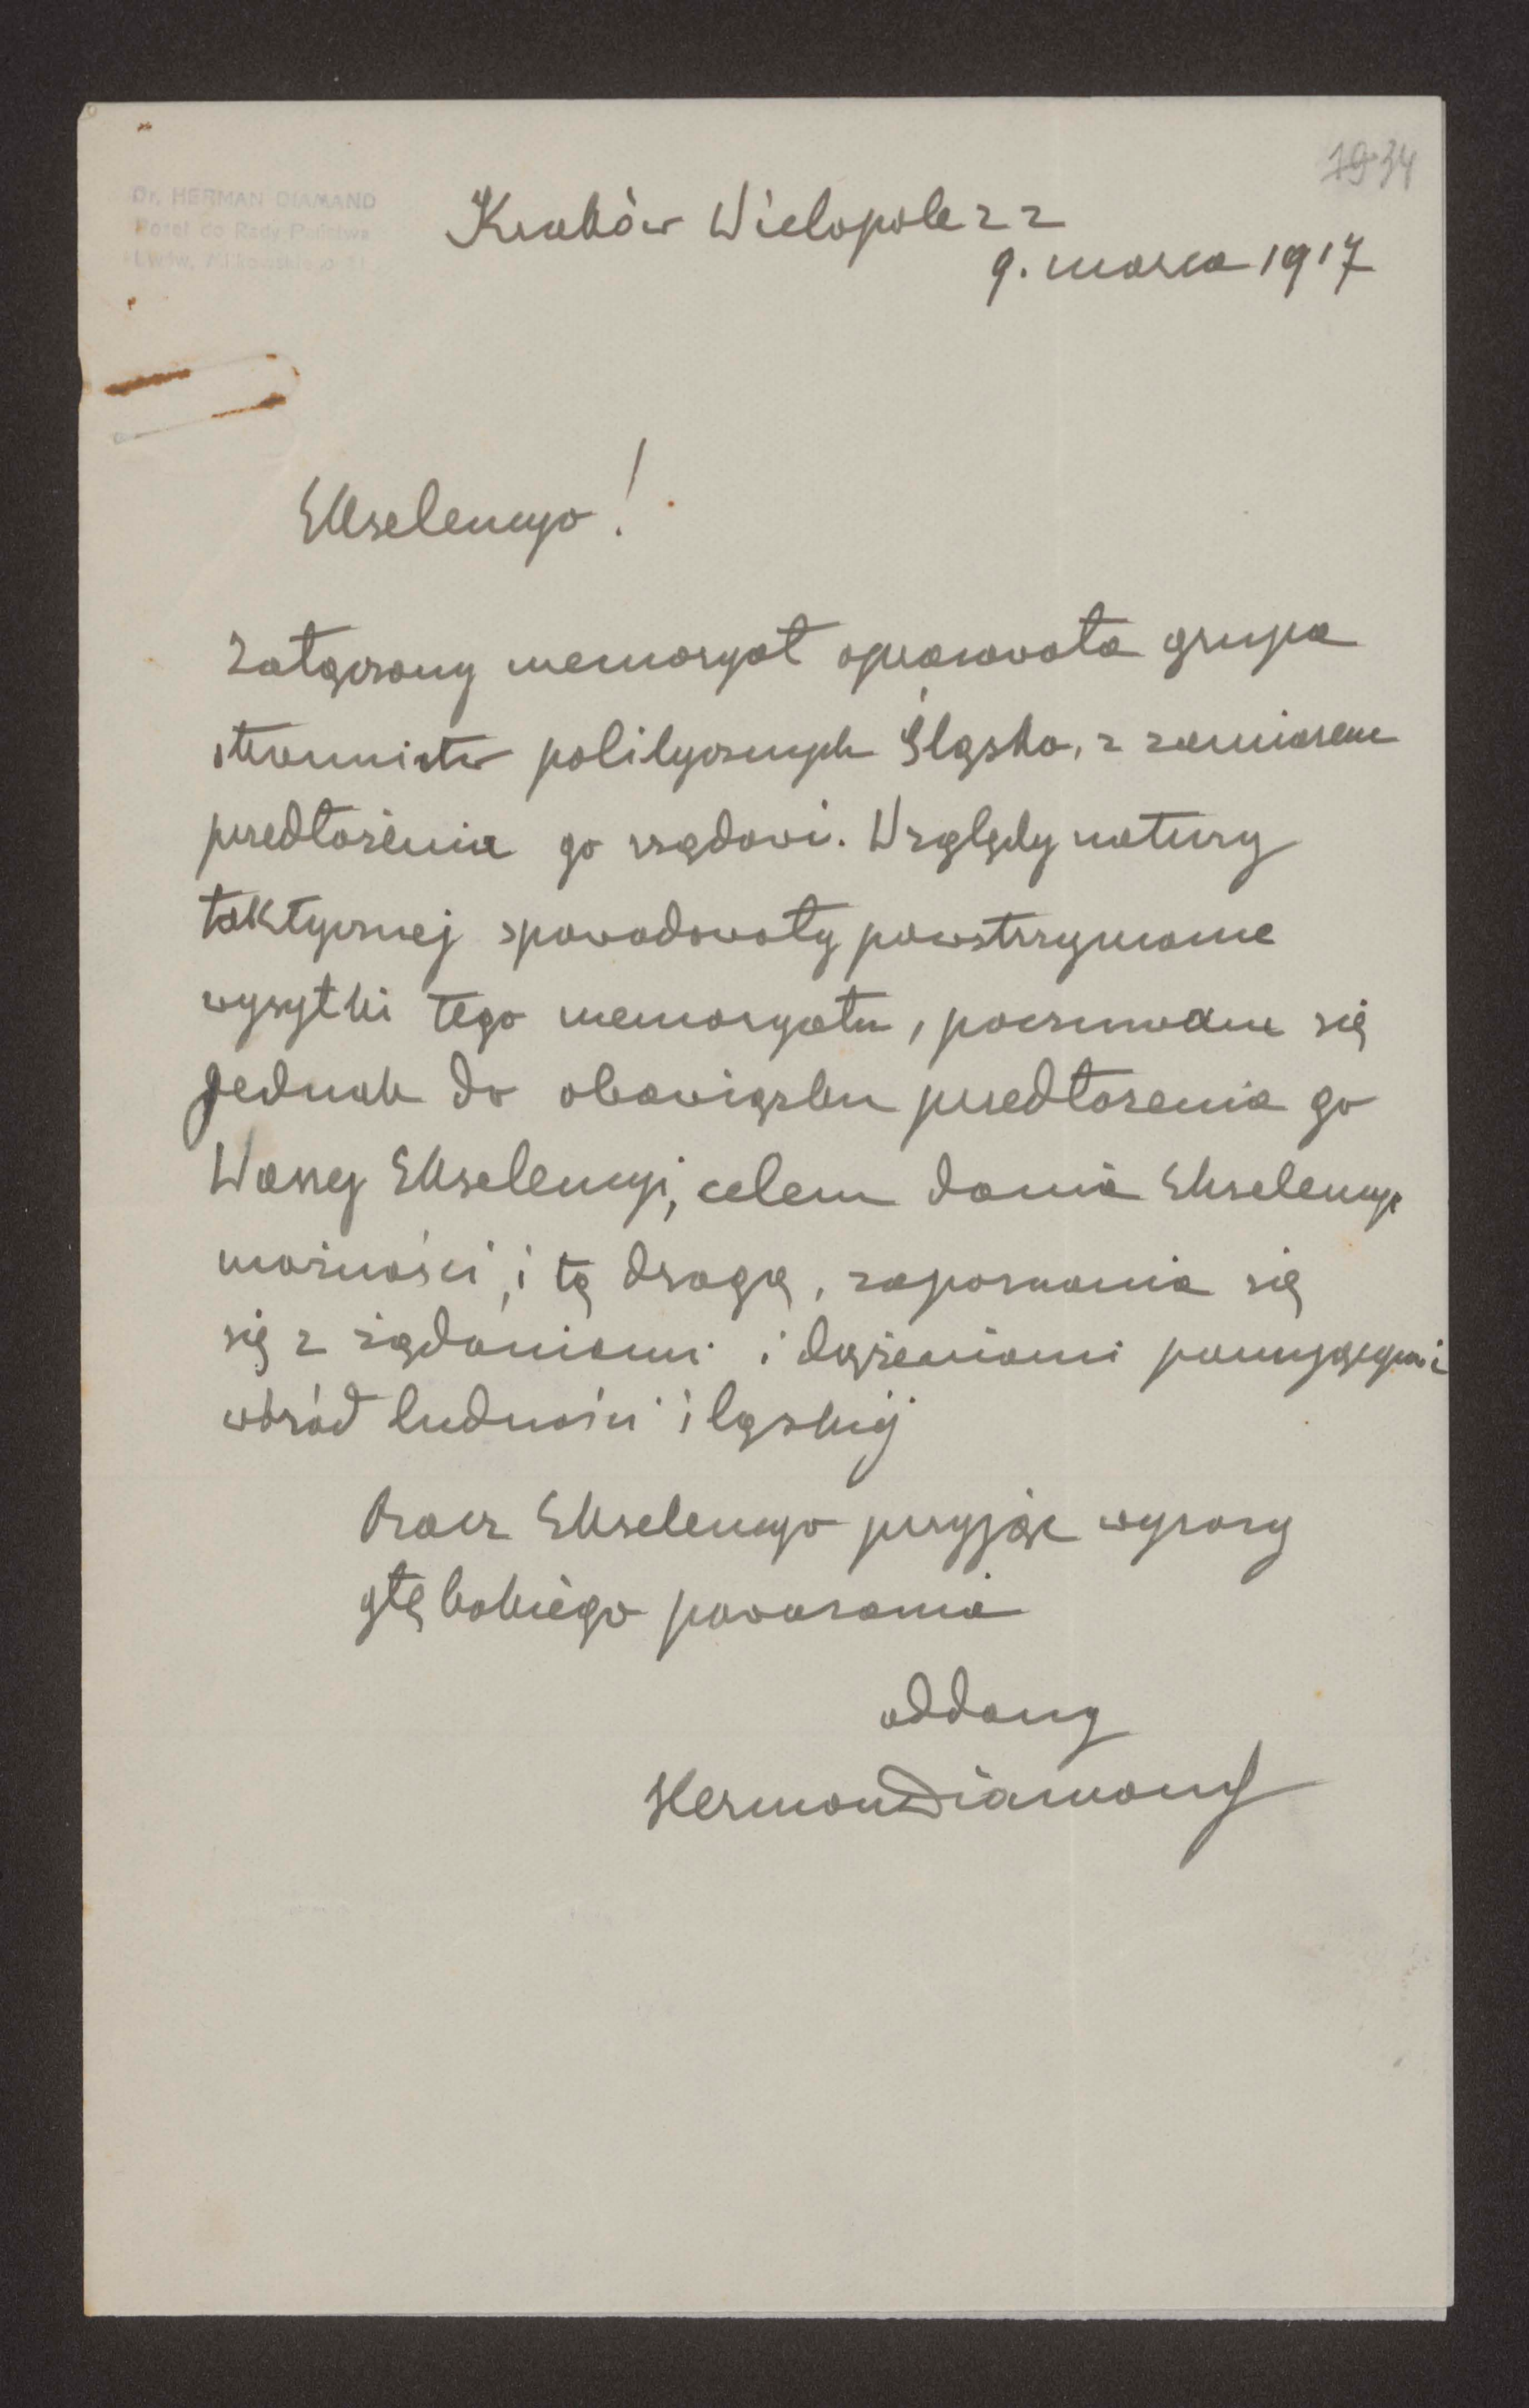 34
Dr. HERMAN DIAMAND
Poseł do Rady Państwa
Lwów,
Kraków Wielopole 22
9. marca 1917
Ekselencyo!
Załączony memoryał opracowała grupa
stronnictw politycznych Śląska, z zamiarem
przedłożenia go rządowi. Względy natury
taktycznej spowodowały powstrzymanie
wysyłki tego memoryału, poczuwam się
jednak do obowiązku przedłożenia go
Waszej Ekselencyi, celem dania Ekselencyi
możności, i tą drogą, zapoznania się
się z żądaniami i dążeniami panującymi
wśród ludności śląskiej
Racz Ekselencyo przyjąć wyrazy
głębokiego poważania
oddany
Herman Diamand